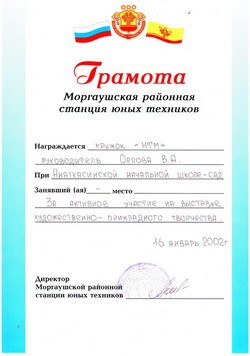 Грамота
Моргаушская районная
станция юных техников
Награждается кружок "НТМ"
руководитель Орлова В.А.
При Анаткасинской начальной школе-сад
Занявший (ая) - место
За активное участие на выставке
художественно-прикладного творчества.
16 январь 2002г
Директор
Моргаушской районной
станции юных техников